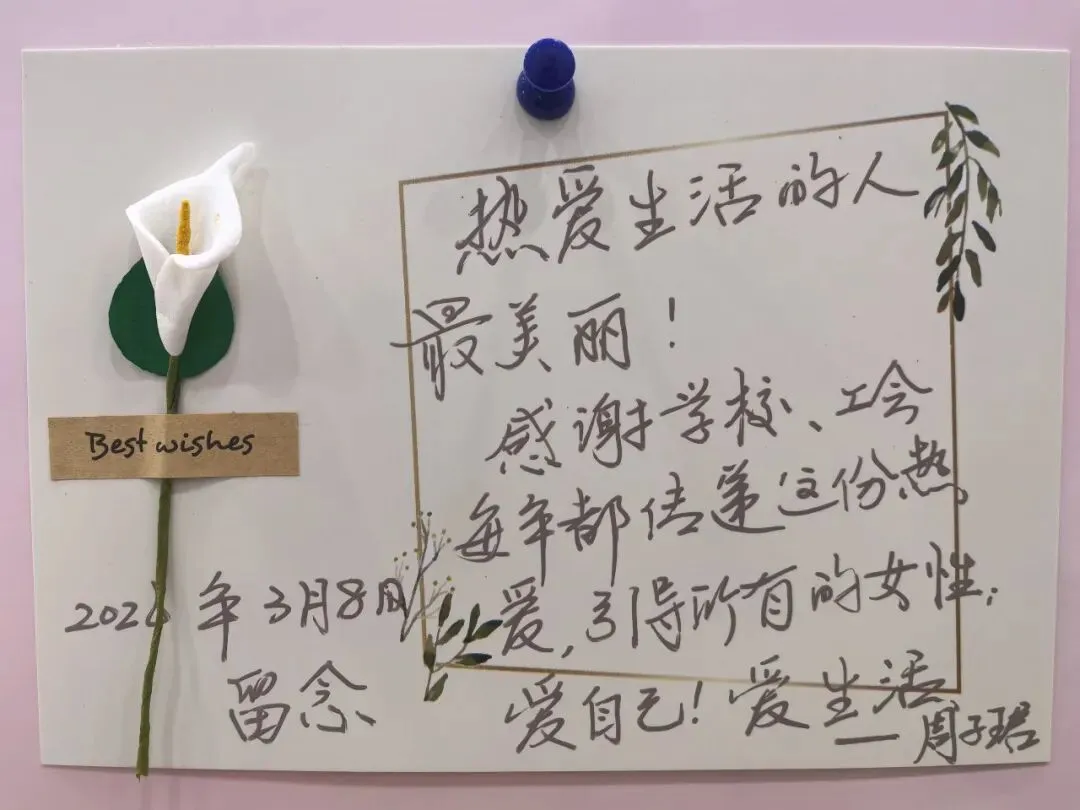 热爱生活的人
最美丽！
感谢学校、工会
每年都传递这份热
爱，引得所有的女性：
爱自己！爱生活
——周子珺
Best wishes
年3月8日
留念